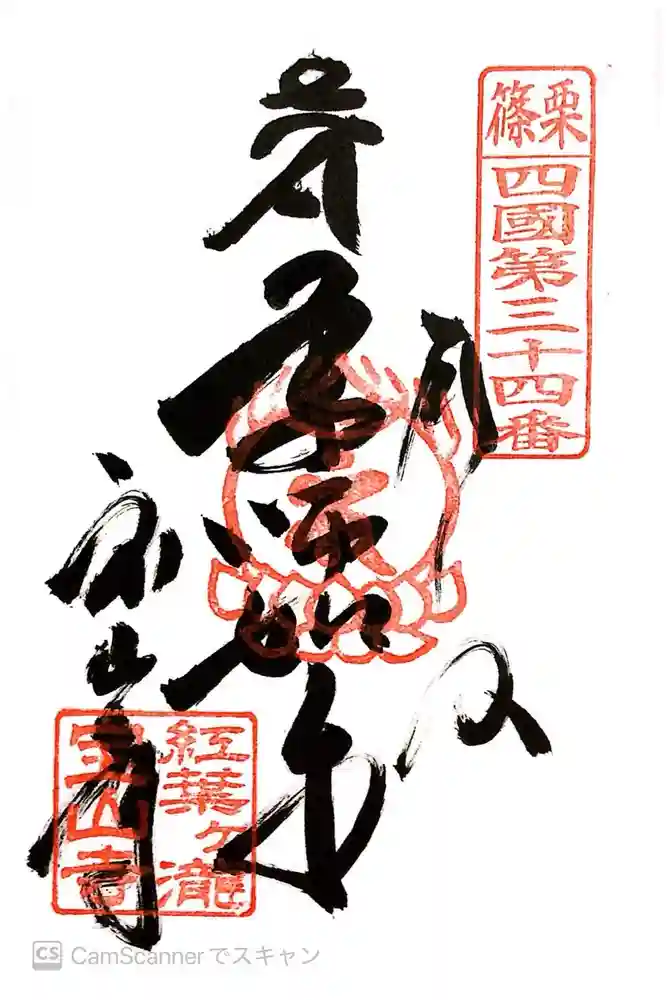 篠栗
四國第三十四番
奉拝
薬師如来
宝山寺
紅葉ヶ滝
宝山寺
CS CamScannerでスキャン